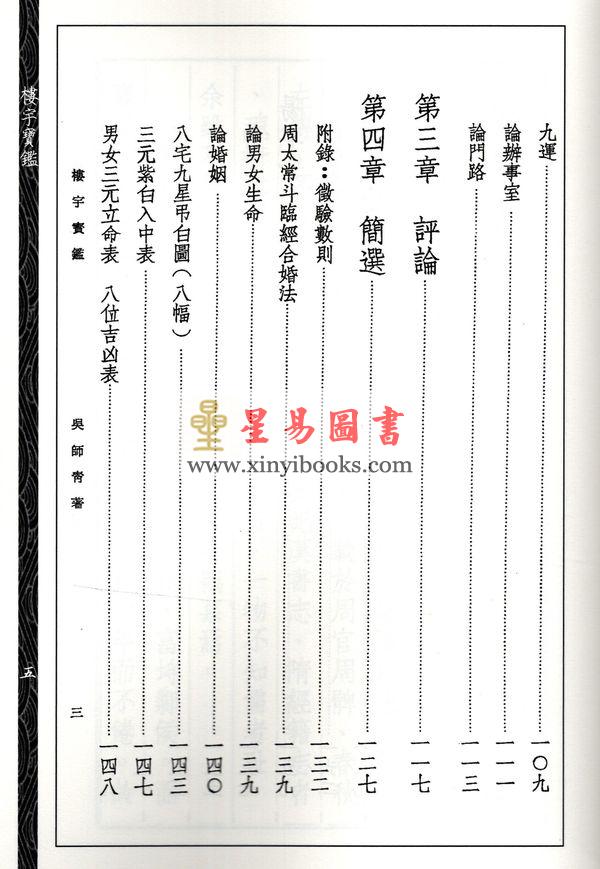 九運 一〇九
論辦事室 一一一
論門路 一一三
第三章 評論 一一七
第四章 簡選 一二七
附錄：徵驗數則 一三二
周太常斗臨經合婚法 一三九
論男女生命 一三九
論婚姻 一四〇
八宅九星弔白圖（八幅） 一四三
三元紫白入中表 一四七
男女三元立命表 八位吉凶表 一四八
樓宇寶鑑 吳師青著 三
樓宇寶鑑 五
星易圖書
www.xinyibooks.com